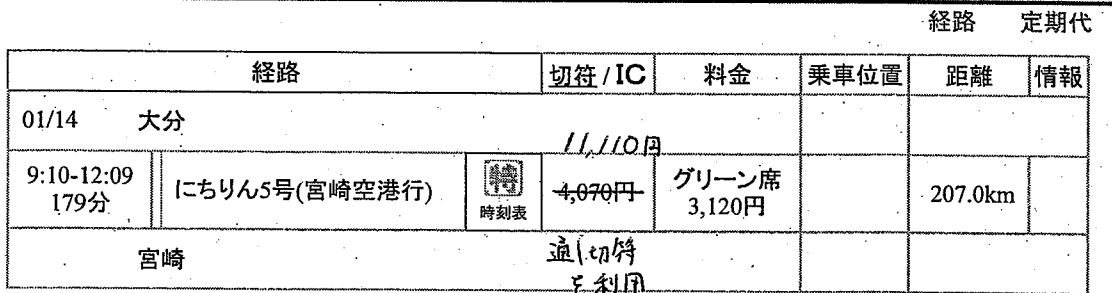 経路 定期代
経路 切符/IC 料金 乗車位置 距離 情報
01/14 大分
11,110円
9:10-12:09
179分
にちりん5号(宮崎空港行)
特
時刻表
4,070円
グリーン席
3,120円
207.0km
宮崎
通し切符
を利用